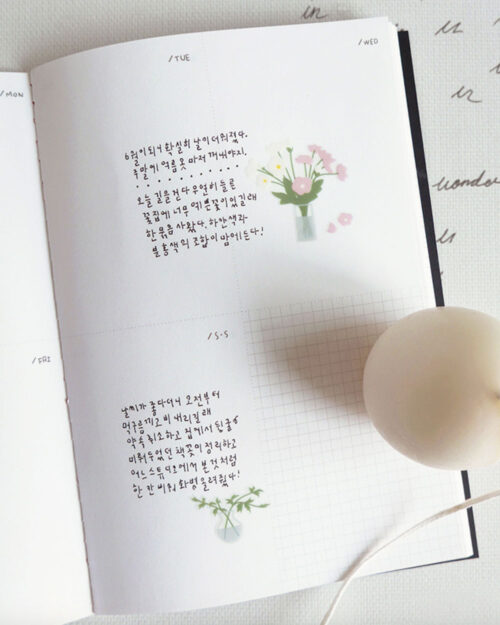 /MON
/TUE
/WED
6월이 되니 확실히 날이 더워졌다.
주말에 여름옷 마저 꺼내야지.
오늘 길을 걷다 우연히 들른
꽃집에 너무 예쁜 꽃이 있길래
한 묶음 사왔다. 하얀색과
분홍색의 조합이 맘에 든다!
/FRI
/S·S
날씨가 좋다더니 오전부터
먹구름 끼고 비 내리길래
약속 취소하고 집에서 뒹굴
미뤄두었던 책꽂이 정리하고
어느 스튜디오에서 본 것처럼
한 칸 비워 화병 올려뒀다!